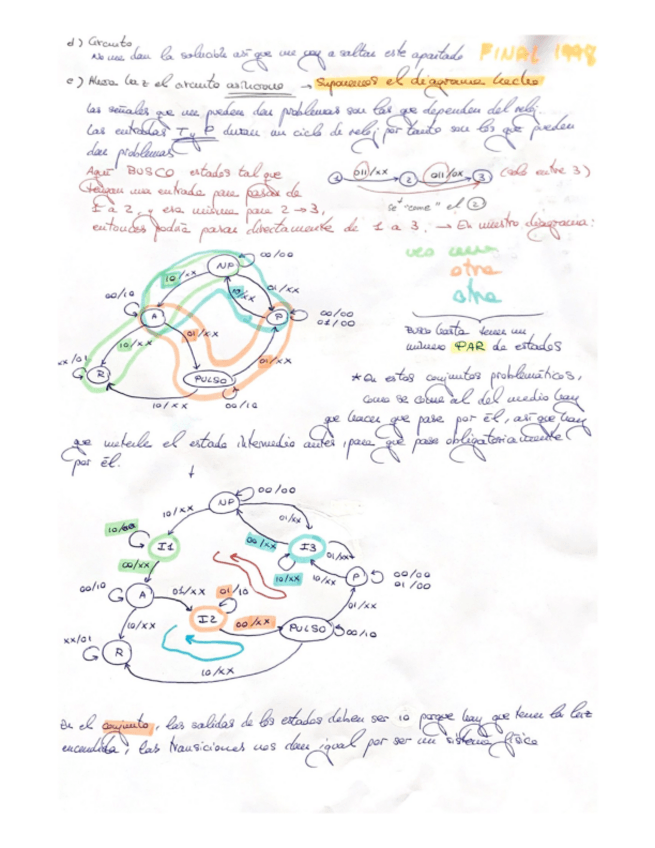 d) Circuito
No me dan la solución así que me voy a saltar este apartado FINAL 1998
e) Ahora haz el circuito asíncrono → Suponemos el diagrama hecho
Las señales que me pueden dar problemas son las que dependen del reloj.
Las entradas T y P duran un ciclo de reloj, por tanto son las que pueden
dar problemas
Aquí BUSCO estados tal que
tengan una entrada para pasar de
1 a 2, y esa misma para 2→3,
entonces podría pasar directamente de 1 a 3. → En nuestro diagrama:
1 011/xx 2 011/0x 3 (ciclo entre 3)
se "come" el 2
veo una
otra
otra
Busco hasta tener un
número PAR de estados
NP 00/00
10/xx
01/xx
00/10
A
01/xx
P 00/00
01/00
10/xx
xx/01
R
PULSO
01/xx
10/xx
00/10
* En estos conjuntos problemáticos,
como se come al del medio hay
que hacer que pase por él, así que hay
que meterle el estado intermedio antes, para que pase obligatoriamente
por él.
↓
NP 00/00
10/xx
01/xx
I1
00/xx
00/xx
I3
01/xx
10/xx
10/xx
P 00/00
01/00
00/10
A
01/xx
01/10
I2
00/xx
PULSO
00/10
01/xx
10/xx
xx/01
R
10/xx
En el conjunto, las salidas de los estados deben ser 10 porque hay que tener la luz
encendida, las transiciones nos dan igual por ser un sistema físico